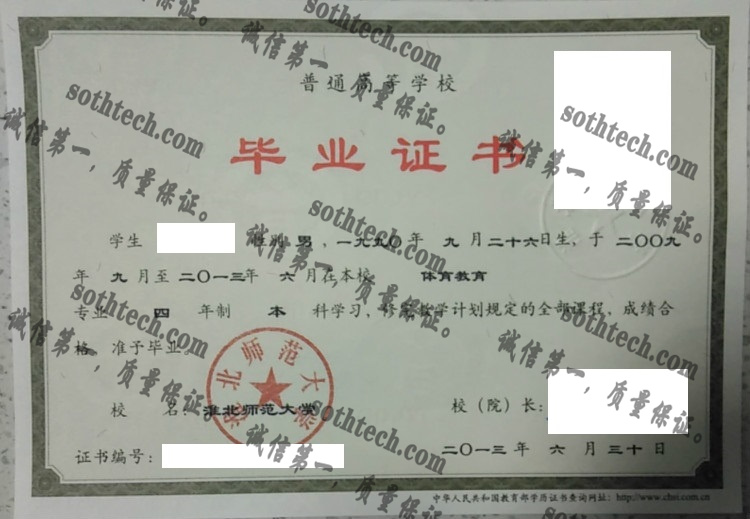 普通高等学校
毕业证书
学生 性别 男，一九九〇年 九月二十六日生，于二〇〇九
年 九月至二〇一三年 六月在本校 体育教育
专业 四 年制 本 科学习，修完教学计划规定的全部课程，成绩合
格，准予毕业。
校 名：淮北师范大学
校（院）长：
证书编号：
二〇一三年 六月三十日
中华人民共和国教育部学历证书查询网址：http://www.chsi.com.cn
淮北师范大学
sothtech.com
诚信第一，质量保证。
sothtech.com
诚信第一，质量保证。
sothtech.com
诚信第一，质量保证。
sothtech.com
诚信第一，质量保证。
sothtech.com
诚信第一，质量保证。
sothtech.com
诚信第一，质量保证。
sothtech.com
诚信第一，质量保证。
sothtech.com